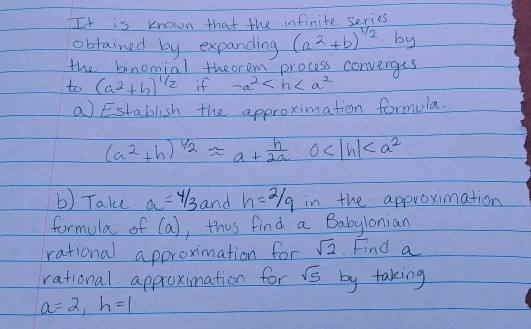 It is known that the infinite series
obtained by expanding (a²+b)^1/2 by
the binomial theorem process converges
to (a²+h)^1/2 if -a²<h<a²
a) Establish the approximation formula.
(a²+h)^1/2 ≈ a + h/2a 0<|h|<a²
b) Take a=4/3 and h=2/9 in the approximation
formula of (a), thus find a Babylonian
rational approximation for √2. Find a
rational approximation for √5 by taking
a=2, h=1